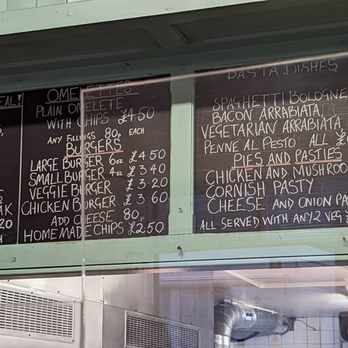 EAL!
AK
20
OMELETTES
PLAIN OMELETE
WITH CHIPS £4.50
ANY FILLINGS 80p EACH
BURGERS
LARGE BURGER 6oz £4.50
SMALL BURGER 4oz £3.40
VEGGIE BURGER £3.20
CHICKEN BURGER £3.60
ADD CHEESE 80p
HOMEMADE CHIPS £2.50
PASTA DISHES
SPAGHETTI BOLOGNE
BACON ARRABIATA
VEGETARIAN ARRABIATA
PENNE AL PESTO ALL £
PIES AND PASTIES
CHICKEN AND MUSHROO
CORNISH PASTY
CHEESE AND ONION PA
ALL SERVED WITH ANY 2 VEG